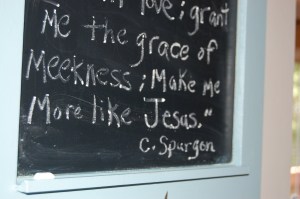 love; grant
Me the grace of
Meekness; Make me
More like Jesus."
C. Spurgon